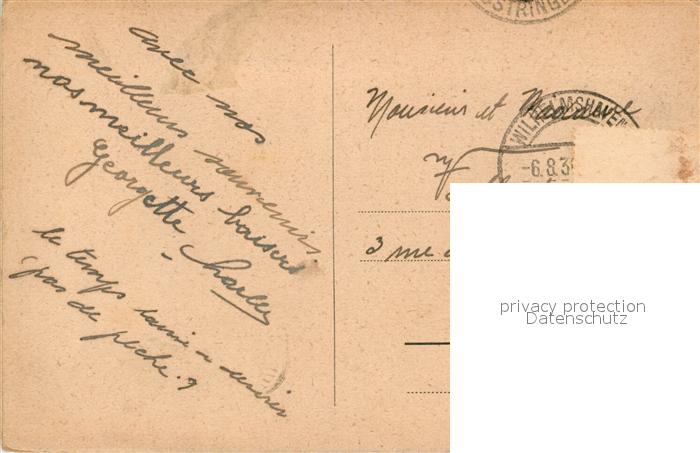 avec nos
meilleurs souvenirs
nos meilleurs baisers
Georgette - Charles
le temps
pas de pêche.
Monsieur et Madame
3 rue
WILHELMSHAVEN
-6.8.3
privacy protection
Datenschutz